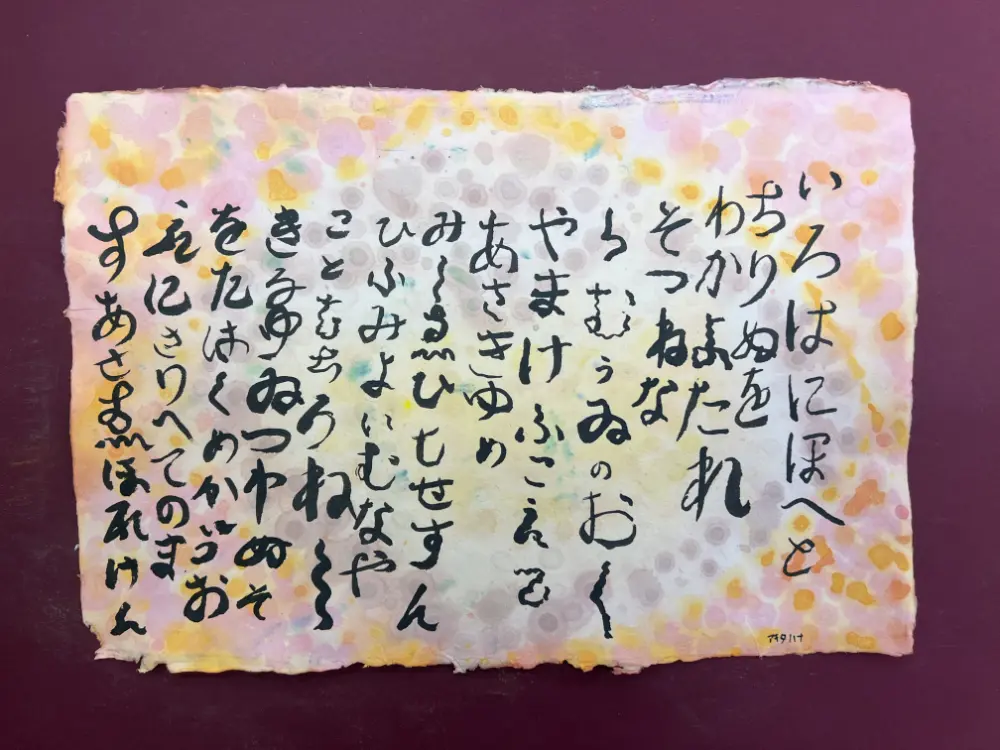 いろはにほへと
ちりぬを
わかよたれ
そつねな
らむうゐのおく
やまけふこえて
あさきゆめ
みしゑひもせすん
ひふみよいむなや
こともちろらねし
きるゆゐつわぬそ
をたはくめかうお
えにさりへてのま
すあさゑほれけん